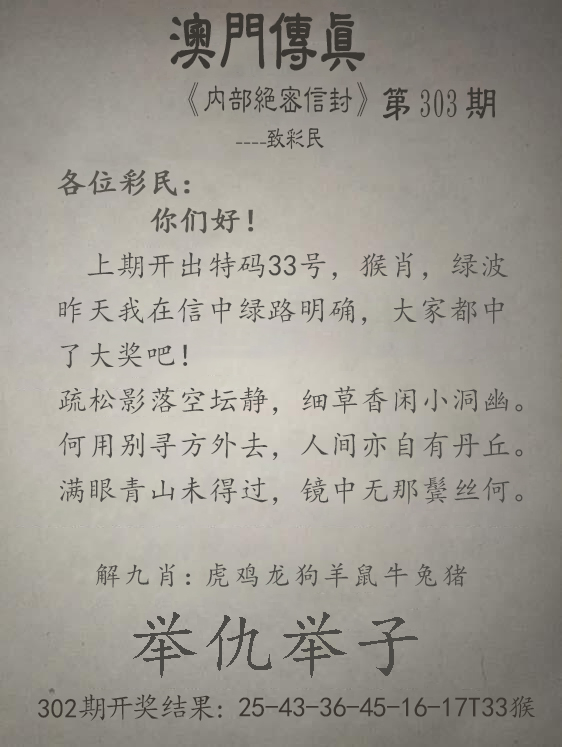 澳門傳真
《内部絕密信封》第303期
----致彩民
各位彩民：
你们好！
上期开出特码33号，猴肖，绿波
昨天我在信中绿路明确，大家都中
了大奖吧！
疏松影落空坛静，细草香闲小洞幽。
何用别寻方外去，人间亦自有丹丘。
满眼青山未得过，镜中无那鬓丝何。
解九肖：虎鸡龙狗羊鼠牛兔猪
举仇举子
302期开奖结果：25-43-36-45-16-17T33猴